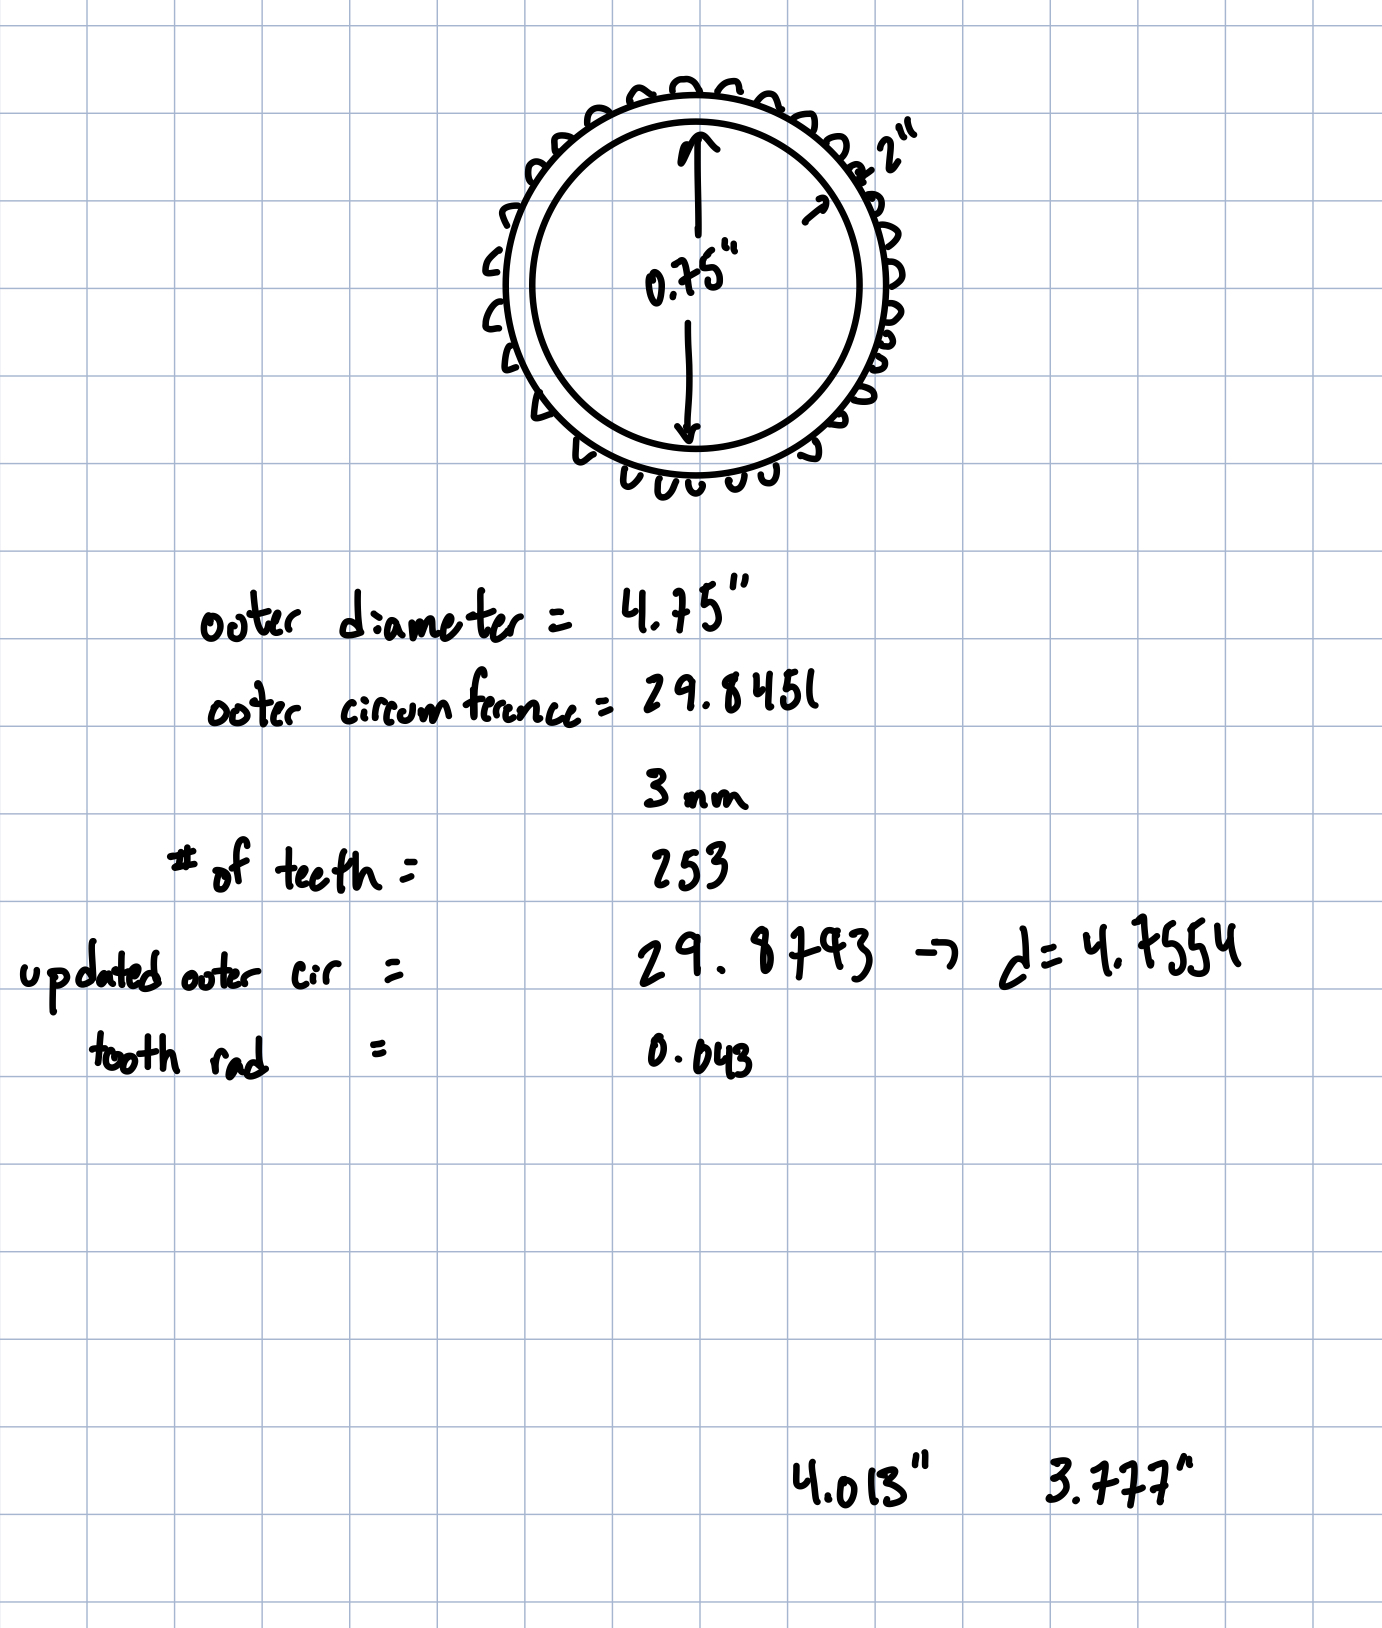 2"
0.75"
outer diameter = 4.75"
outer circumference = 29.8451
3 mm
# of teeth = 253
updated outer cir = 29.8793 → d = 4.7554
tooth rad = 0.043
4.013" 3.777"